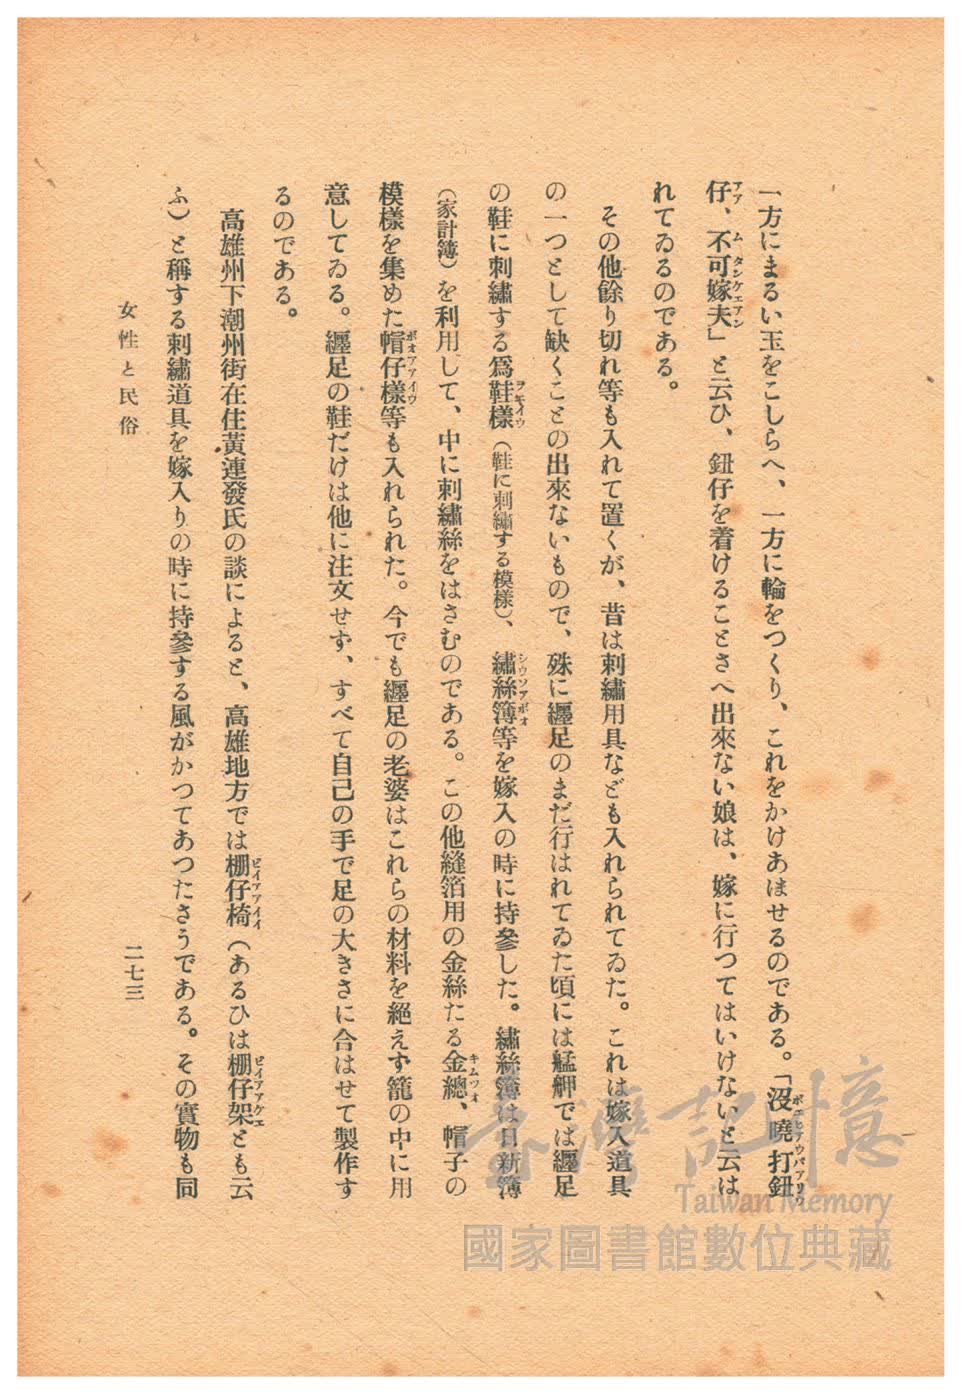 一方にまるい玉をこしらへ、一方に輪をつくり、これをかけあはせるのである。「沒曉打鈕
仔、不可嫁夫」と云ひ、鈕仔を着けることさへ出來ない娘は、嫁に行つてはいけないと云は
れてゐるのである。
その他餘り切れ等も入れて置くが、昔は刺繡用具なども入れられてゐた。これは嫁入道具
の一つとして缺くことの出來ないもので、殊に纒足のまだ行はれてゐた頃には艋舺では纒足
の鞋に刺繡する爲鞋樣（鞋に刺繡する模樣）、繡絲簿等を嫁入の時に持參した。繡絲簿は日新簿
（家計簿）を利用して、中に刺繡絲をはさむのである。この他縫箔用の金絲たる金總、帽子の
模樣を集めた帽仔樣等も入れられた。今でも纒足の老婆はこれらの材料を絕えず籠の中に用
意してゐる。纒足の鞋だけは他に注文せず、すべて自己の手で足の大きさに合はせて製作す
るのである。
高雄州下潮州街在住黃連發氏の談によると、高雄地方では棚仔椅（あるひは棚仔架とも云
ふ）と稱する刺繡道具を嫁入りの時に持參する風がかつてあつたさうである。その實物も同
女性と民俗
二七三
臺灣記憶
Taiwan Memory
國家圖書館數位典藏